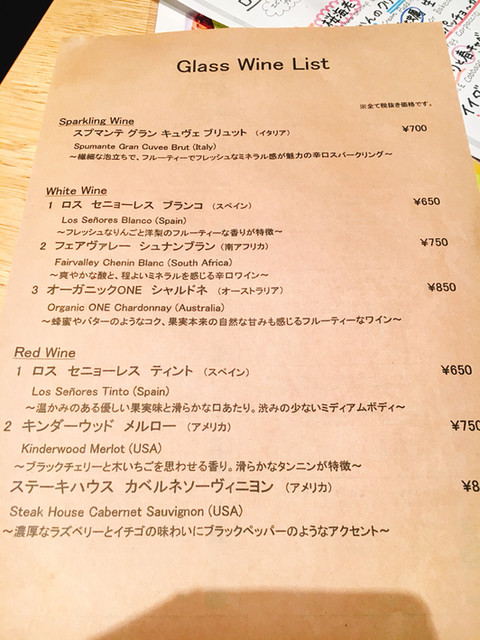 Glass Wine List
※全て税抜き価格です。
Sparkling Wine
スプマンテ グラン キュヴェ ブリュット （イタリア） ¥700
Spumante Gran Cuvee Brut (Italy)
～繊細な泡立ちで、フルーティーでフレッシュなミネラル感が魅力の辛口スパークリング～
White Wine
1 ロス セニョーレス ブランコ （スペイン） ¥650
Los Señores Blanco (Spain)
～フレッシュなりんごと洋梨のフルーティーな香りが特徴～
2 フェアヴァレー シュナンブラン （南アフリカ） ¥750
Fairvalley Chenin Blanc (South Africa)
～爽やかな酸と、程よいミネラルを感じる辛口ワイン～
3 オーガニックONE シャルドネ （オーストラリア） ¥850
Organic ONE Chardonnay (Australia)
～蜂蜜やバターのようなコク、果実本来の自然な甘みも感じるフルーティーなワイン～
Red Wine
1 ロス セニョーレス ティント （スペイン） ¥650
Los Señores Tinto (Spain)
～温かみのある優しい果実味と滑らかな口あたり。渋みの少ないミディアムボディ～
2 キンダーウッド メルロー （アメリカ） ¥750
Kinderwood Merlot (USA)
～ブラックチェリーと木いちごを思わせる香り。滑らかなタンニンが特徴～
ステーキハウス カベルネソーヴィニヨン （アメリカ） ¥8
Steak House Cabernet Sauvignon (USA)
～濃厚なラズベリーとイチゴの味わいにブラックペッパーのようなアクセント～